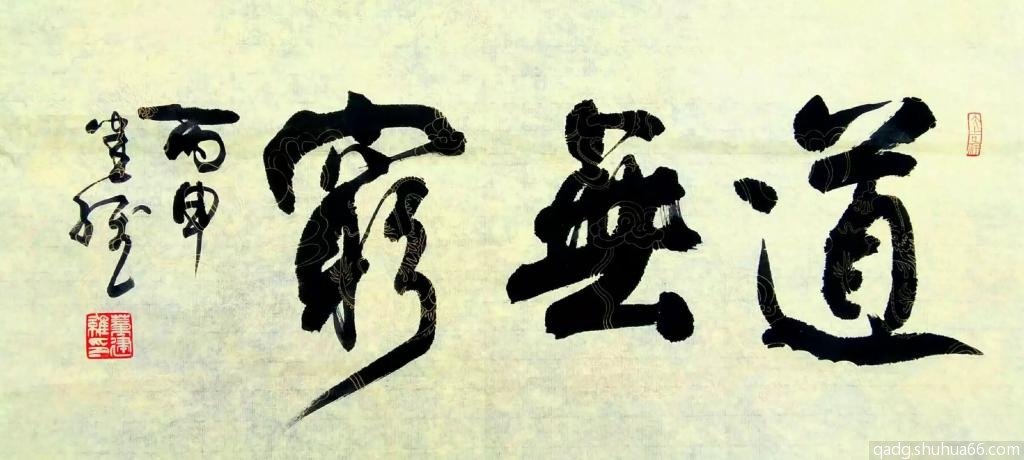 道無窮
丙申
qadg.shuhua66.com